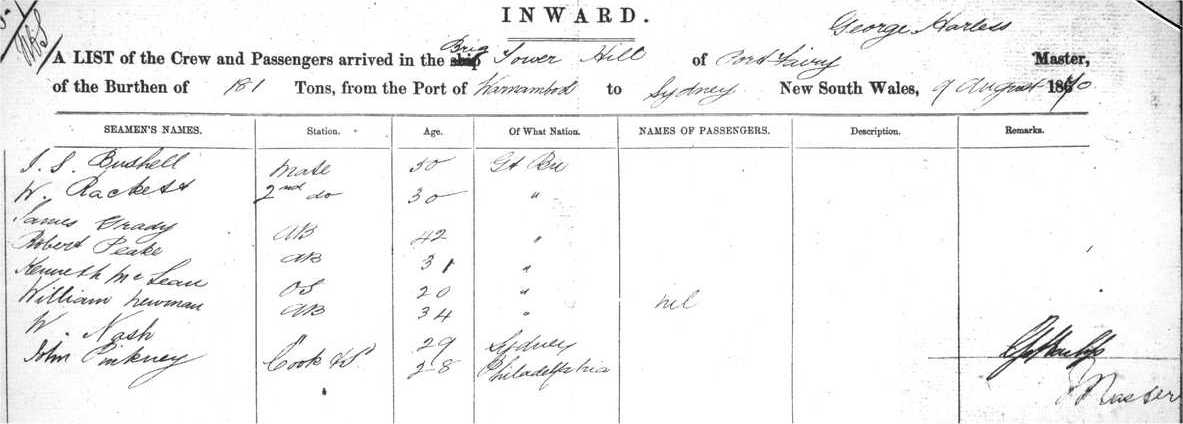 INWARD.
George Harless
A LIST of the Crew and Passengers arrived in the Brig Tower Hill of Port Fairy Master,
of the Burthen of 181 Tons, from the Port of Warnambool to Sydney New South Wales, 9 August 1870
SEAMEN'S NAMES. Station. Age. Of What Nation. NAMES OF PASSENGERS. Description. Remarks.
J. S. Bushell Mate 50 Gt Bri
W. Rackett 2nd do 30 "
James Grady AB 42 "
Robert Peake AB 31 "
Kenneth McLean OS 20 "
William Newman AB 34 " nil
W. Nash 29 Sydney
John Pinkney Cook &c 28 Philadelphia
Master